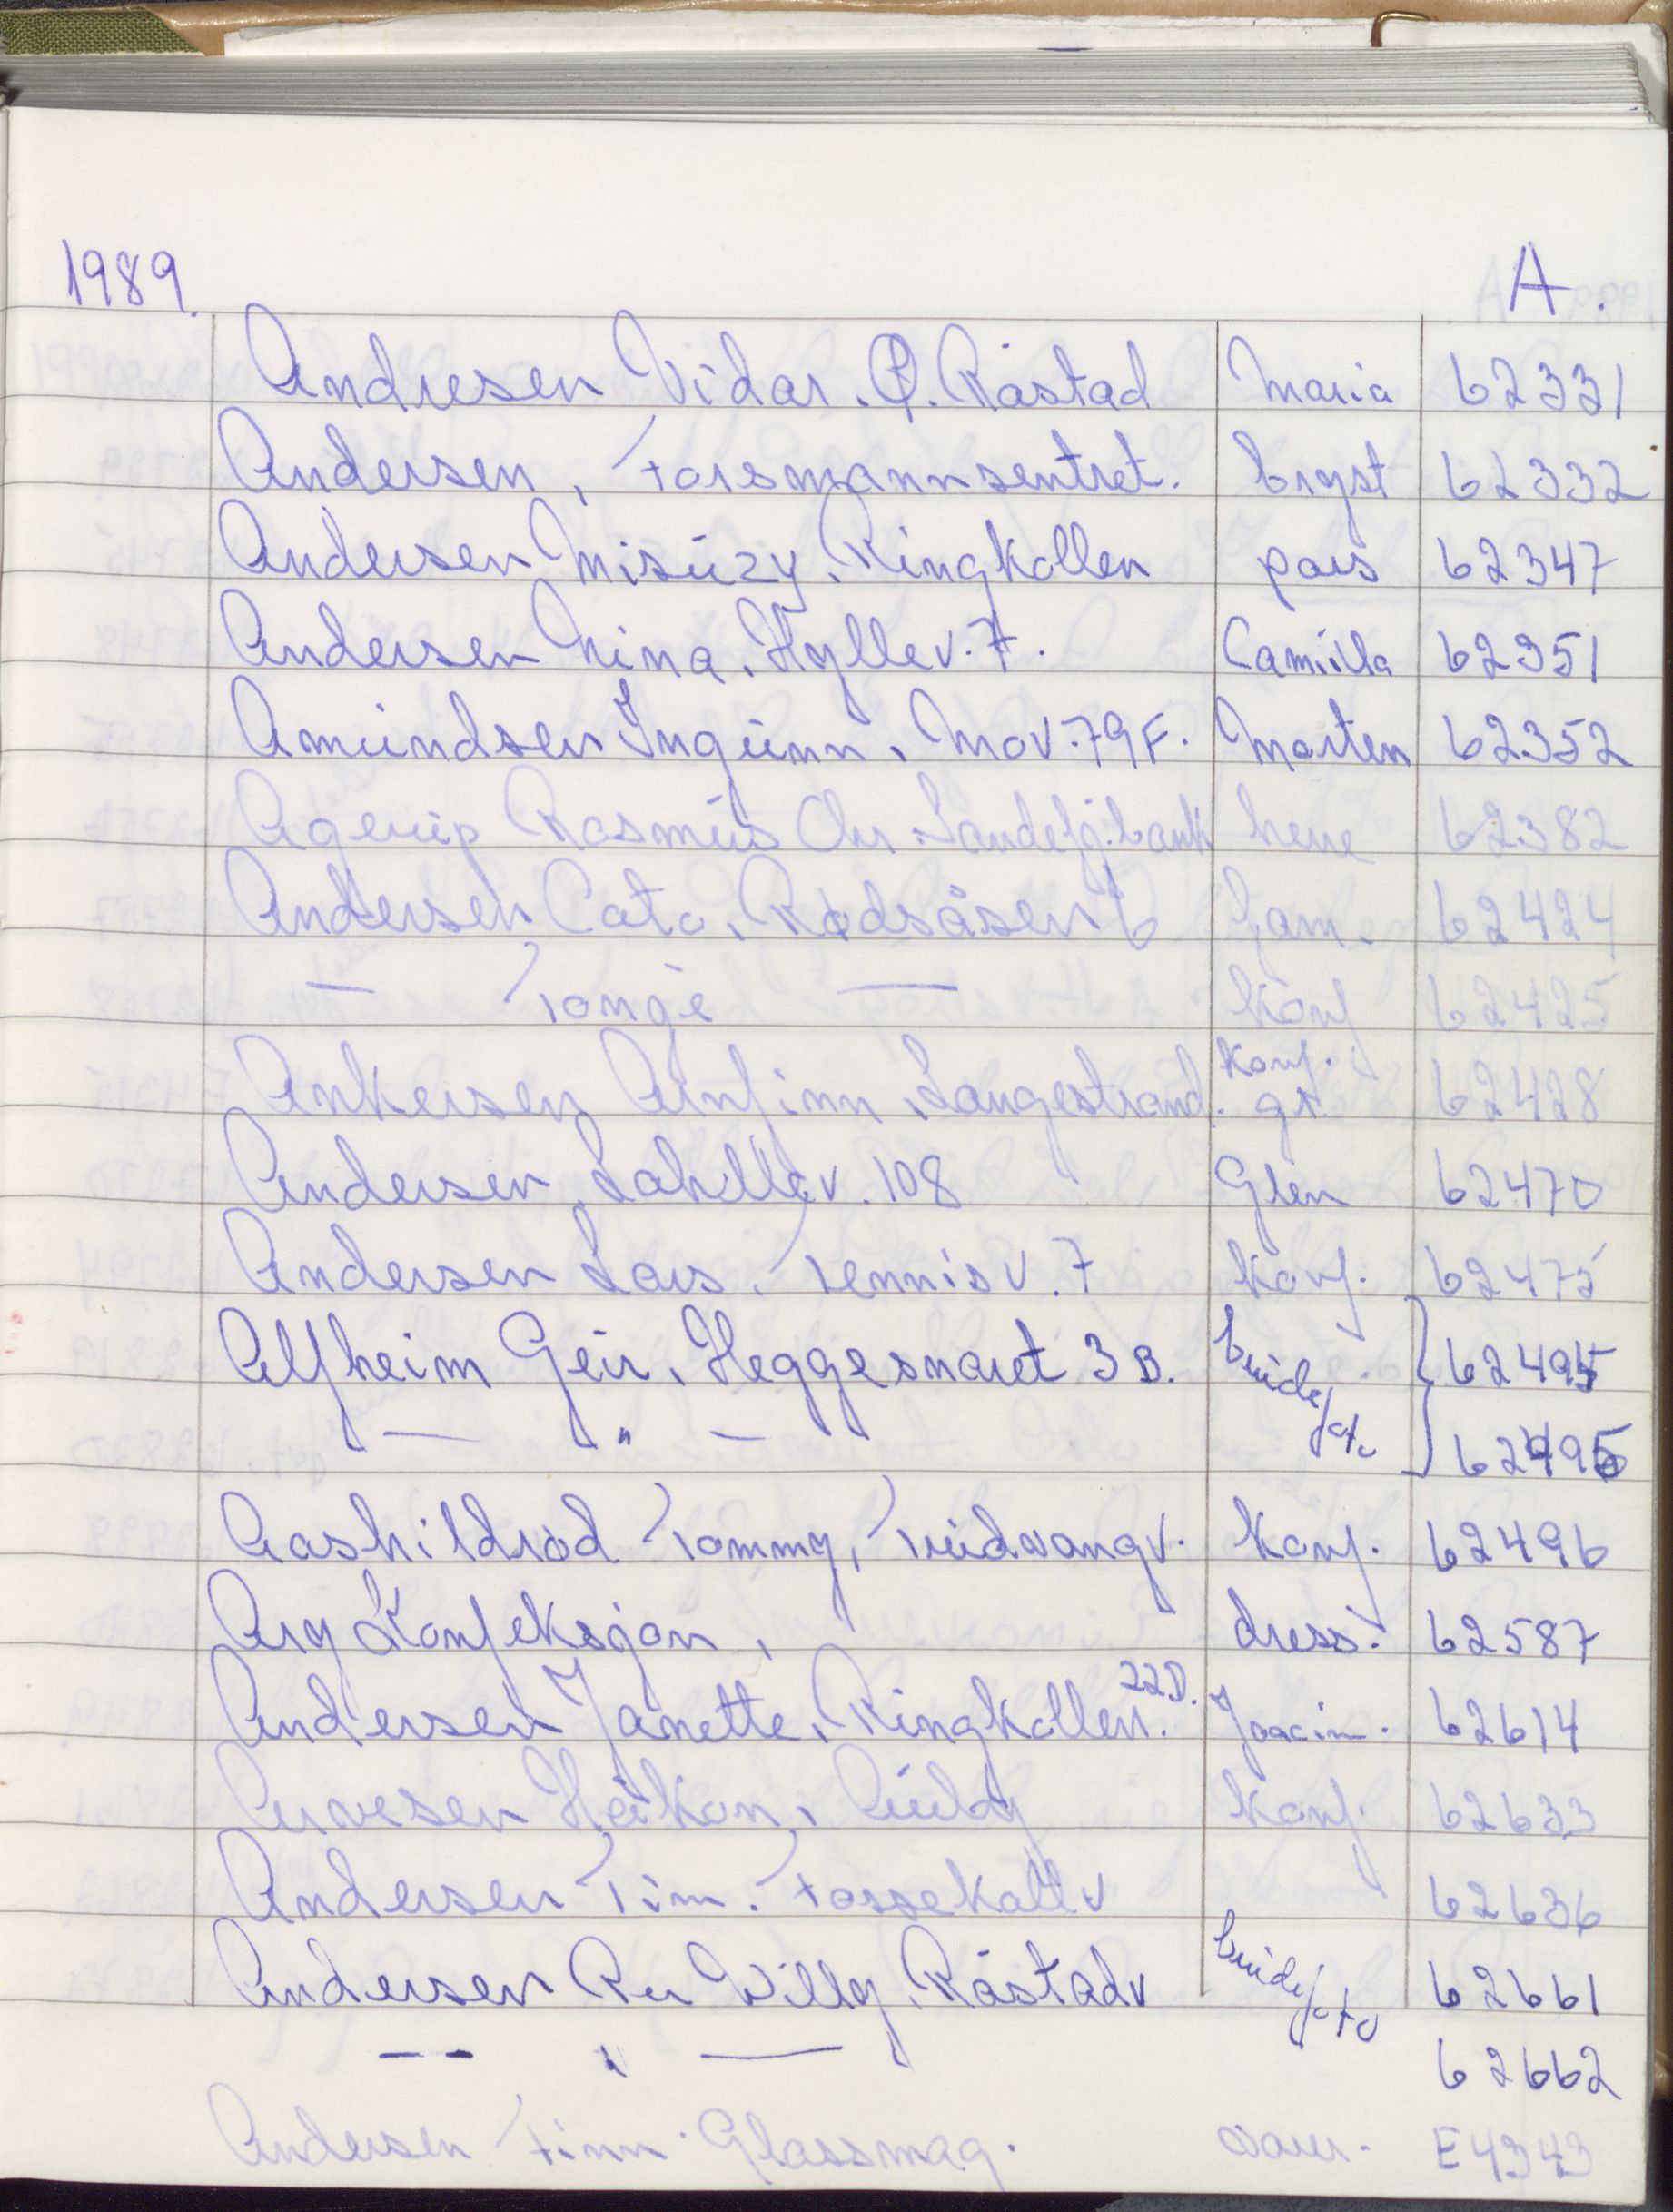 1989. A.
Andresen Vidar. Ø. Råstad Maria 62331
Andersen, Forsmannsentret. bryst 62332
Andersen Misüzy. Ringkollen pass 62347
Andersen Nina. Hyllev. 7. Camilla 62351
Amundsen Ingunn. Mov. 79 F. Morten 62352
Agerup Rasmus Chr. Sandefj. bank herre 62382
Andersen Cato, Rødsåsen 6 fam. 62424
— Tonje — konf 62425
Ankersen Arnfinn Langestrand. konf. gr. 62428
Andersen, Lahellev. 108 Glen 62470
Andersen Lars. Tennisv. 7 konf. 62475
Alfheim Geir. Heggesnaret 3 B. brude 62495
— " — foto 62495
Aashildrød Tommy, Trudvangv. konf. 62496
Ary Konfeksjon, dress. 62587
Andersen Janette, Ringkollen. 22D. Joacim. 62614
Arvesen Håkon, konf. 62633
Andersen Tim. Fossekallv 62636
Andersen Per Willy, Råstadv brude 62661
— — " — foto 62662
Andersen Finn. Glassmag. E4343